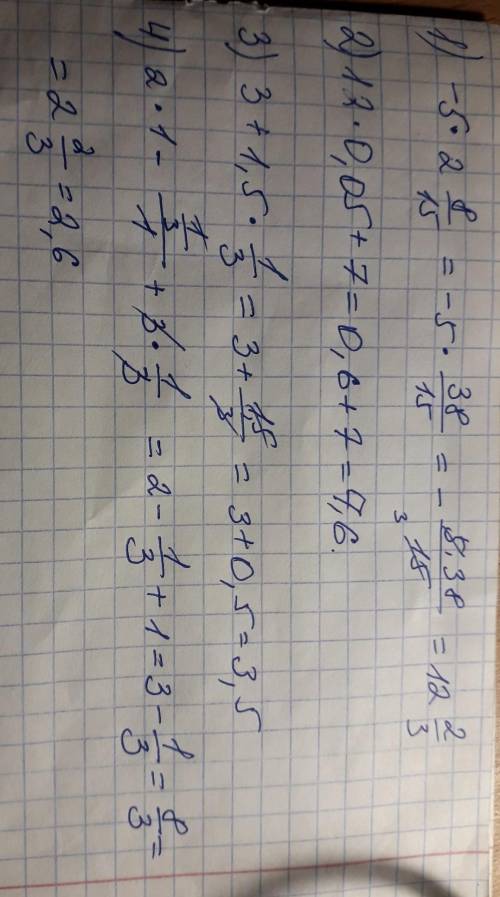 1) -5 · 2 8/15 = -5 · 38/15 = - 5·38/15 3 = 12 2/3
2) 12 · 0,05 + 7 = 0,6 + 7 = 7,6.
3) 3 + 1,5 · 1/3 = 3 + 1,5/3 = 3 + 0,5 = 3,5
4) 2 · 1 - 1/3/1 + 3 · 1/3 = 2 - 1/3 + 1 = 3 - 1/3 = 8/3 =
= 2 2/3 = 2,6